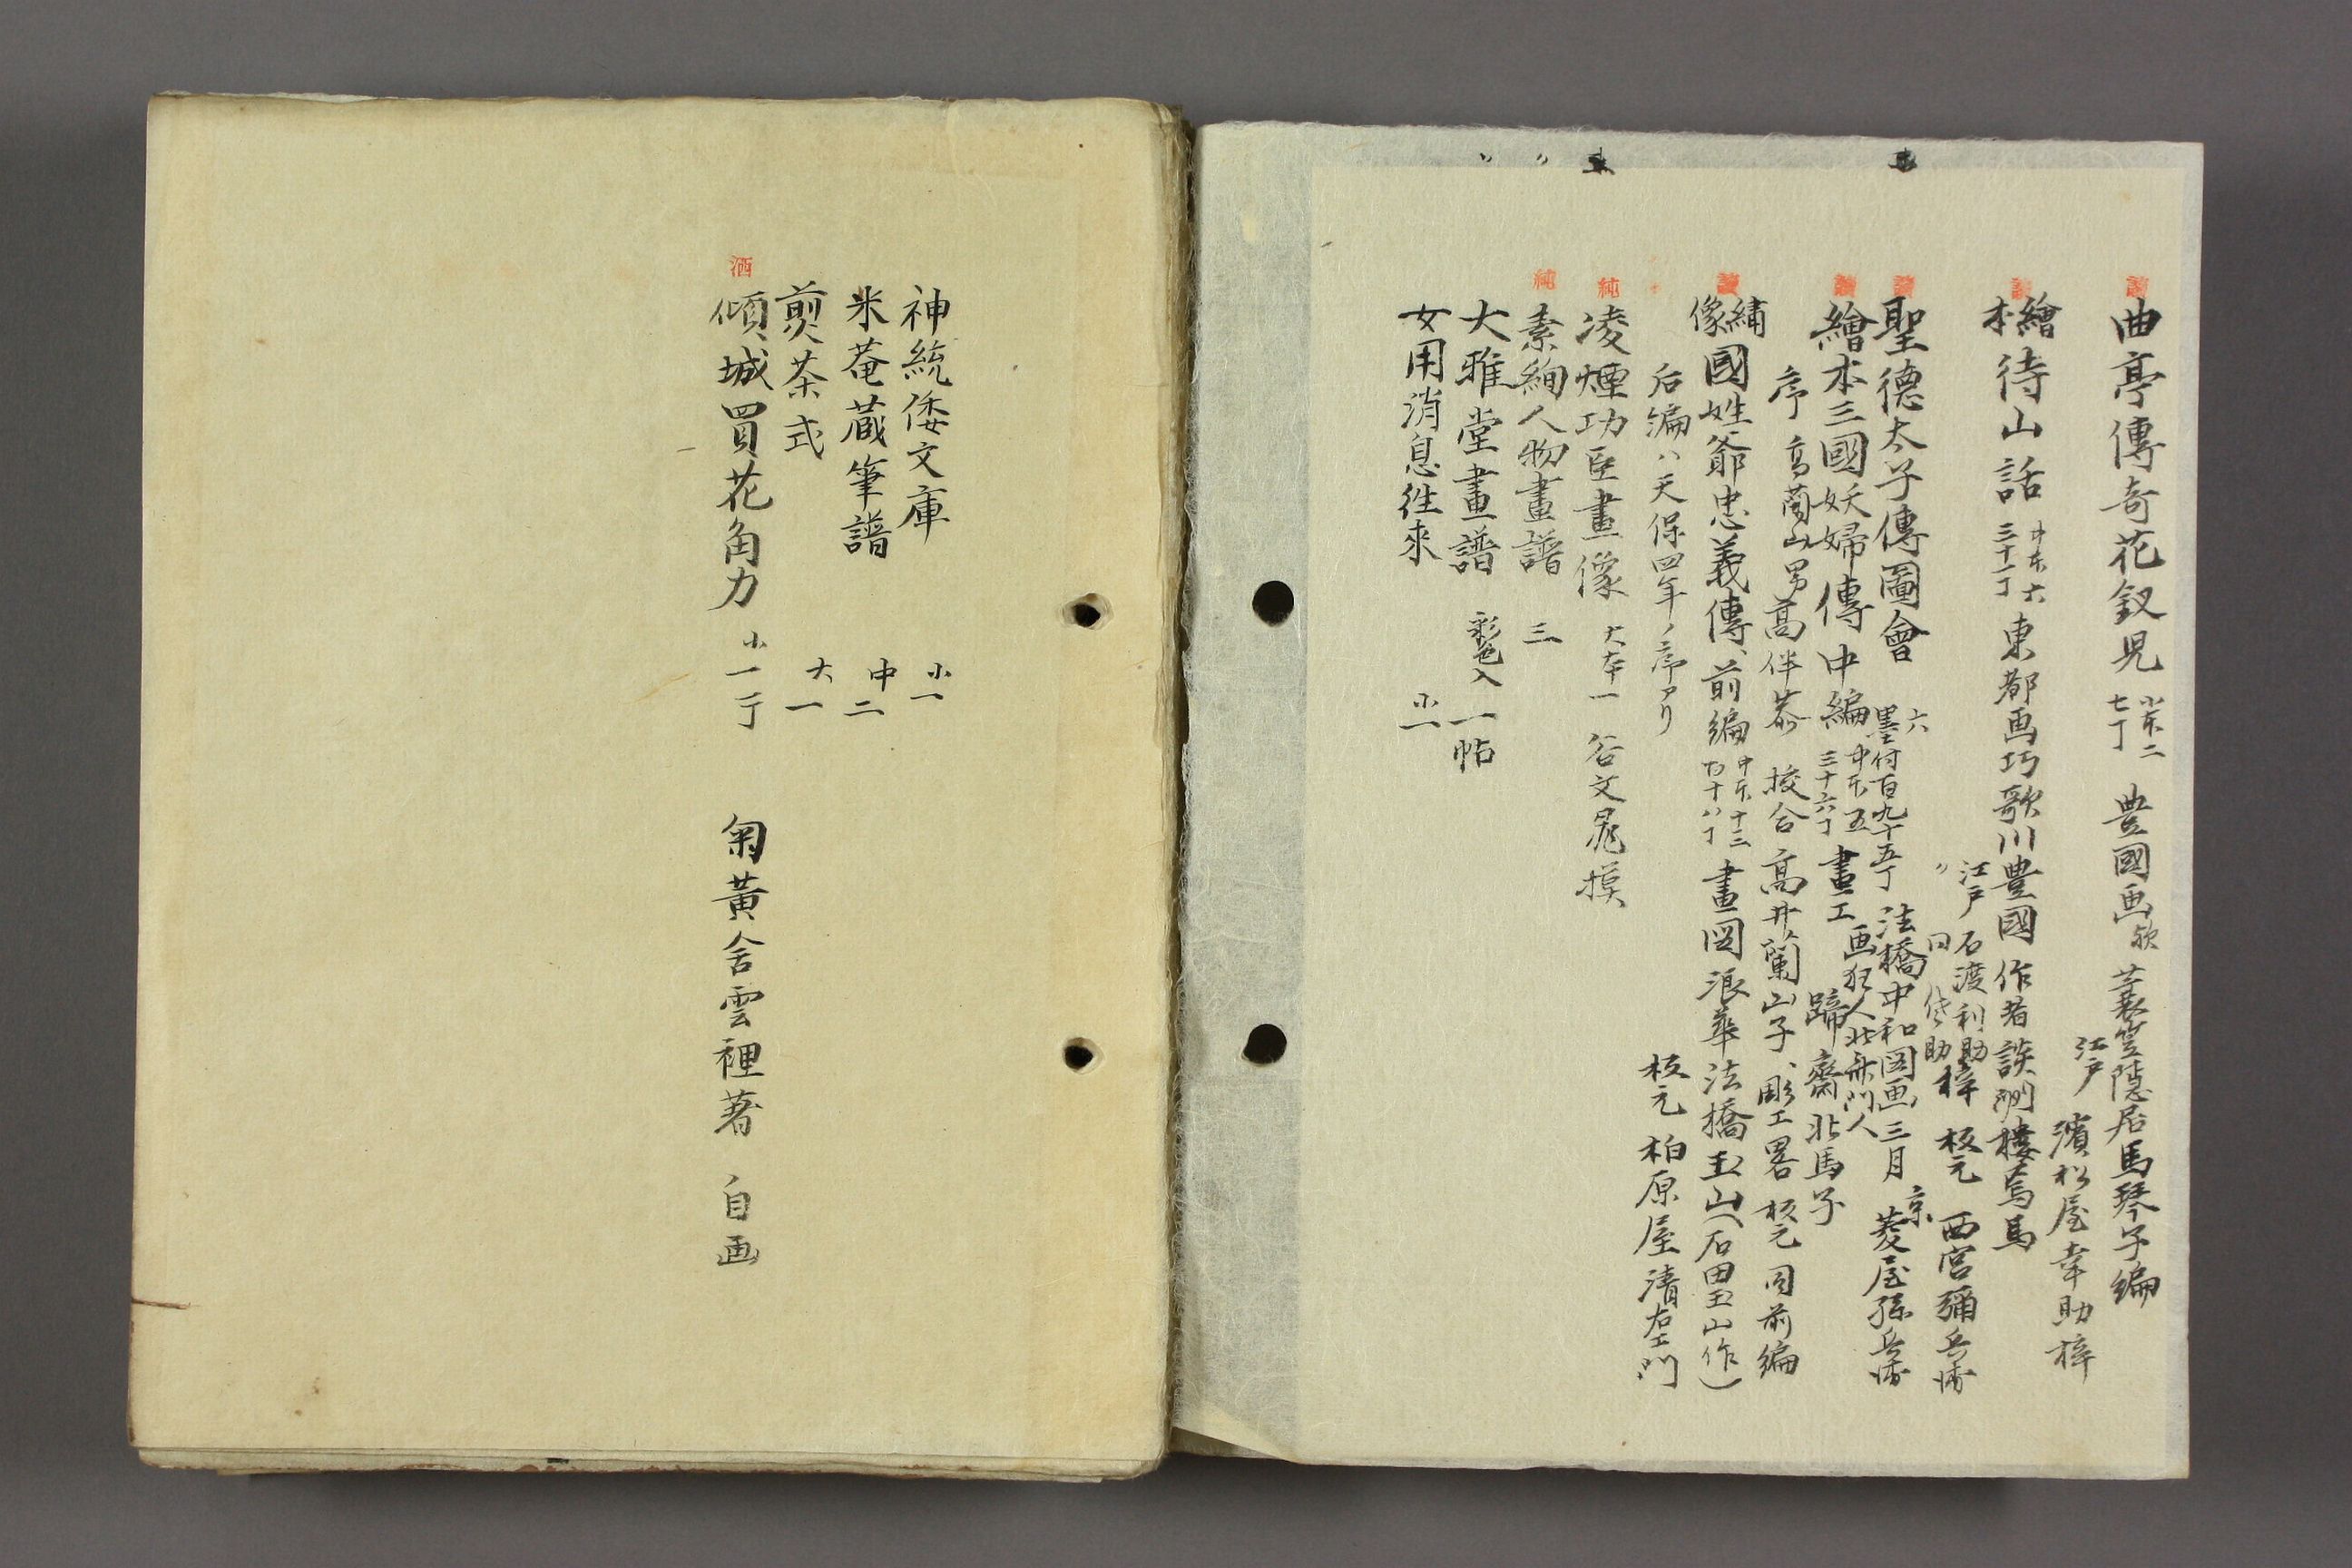 曲亭傳奇花釵児 小本二 七丁 豊國画欤 蓑笠隠居馬琴子編
江戸 濱松屋幸助梓
繪本待山話 中本六 三十一丁 東都画巧歌川豊國 作者談洲樓焉馬
江戸 石渡利助
〃 同 佐助 梓 板元 西宮彌兵衛
聖德太子傳圖會 六 墨付百九十五丁 法橋中和図画 三月 京 菱屋孫兵衛
繪本三國妖婦傳 中編 中本五 三十六丁 畫工 画狂人北斎門人 蹄齋北馬子
序 高蘭山男高伴恭 挍合 高井蘭山子、彫工畧 板元同前編
繡像國姓爺忠義傳、前編 中本十三 畫図 浪華法橋玉山(石田玉山作)
后編ハ天保四年ノ序アリ 板元 柏原屋清右エ門
凌煙功臣畫像 大本一 谷文晁摸
素絢人物畫譜 三
大雅堂畫譜 彩色入 一帖
女用消息往來 小一
神統倭文庫 小一
米菴蔵筆譜 中二
煎茶式 大一
酒 傾城買花角力 小一丁 菊黃舎雲裡著 自画